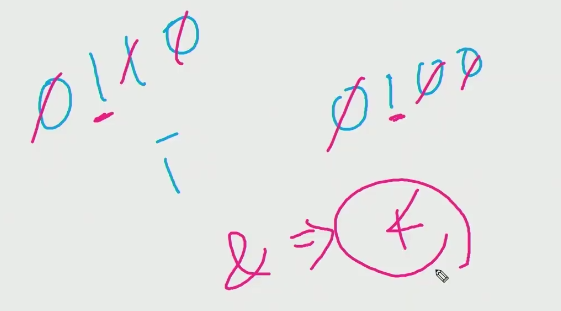 0110 0100
& => 4